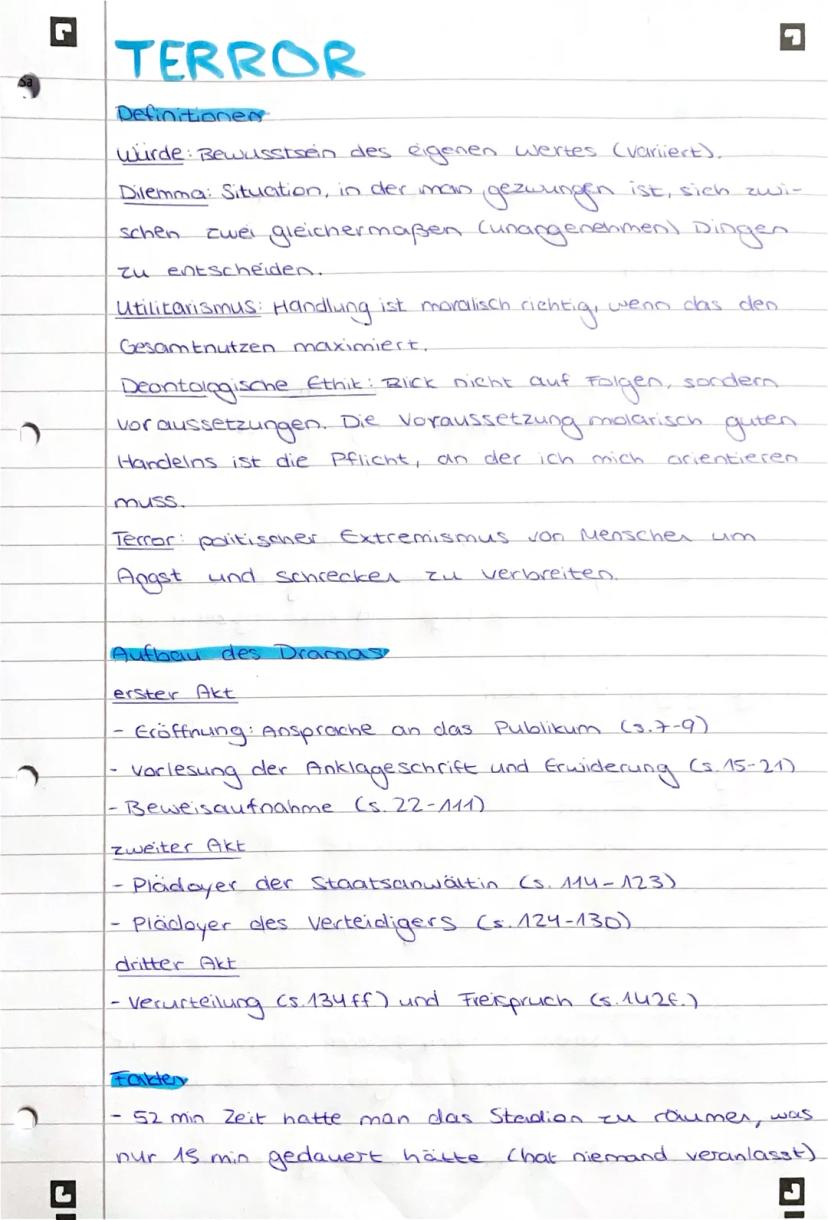 TERROR
Definitionen
Würde: Bewusstsein des eigenen Wertes (variiert).
Dilemma: Situation, in der man gezwungen ist, sich zwi-
schen zwei gleichermaßen (unangenehmen) Dingen
zu entscheiden.
Utilitarismus: Handlung ist moralisch richtig, wenn das den
Gesamtnutzen maximiert.
Deontologische Ethik: Blick nicht auf Folgen, sondern
Voraussetzungen. Die Voraussetzung molarisch guten
Handelns ist die Pflicht, an der ich mich orientieren
muss.
Terror: politischer Extremismus von Menschen um
Angst und Schrecken zu verbreiten.
Aufbau des Dramas
erster Akt
- Eröffnung: Ansprache an das Publikum (S.7-9)
- Vorlesung der Anklageschrift und Erwiderung (S. 15-21)
- Beweisaufnahme (S. 22-111)
zweiter Akt
- Plädoyer der Staatsanwältin (S. 114-123)
- Plädoyer des Verteidigers (S. 124-130)
dritter Akt
- Verurteilung (S.134ff) und Freispruch (S. 142f.)
Fakten
- 52 min Zeit hatte man das Stadion zu räumen, was
nur 15 min gedauert hätte (hat niemand veranlasst)